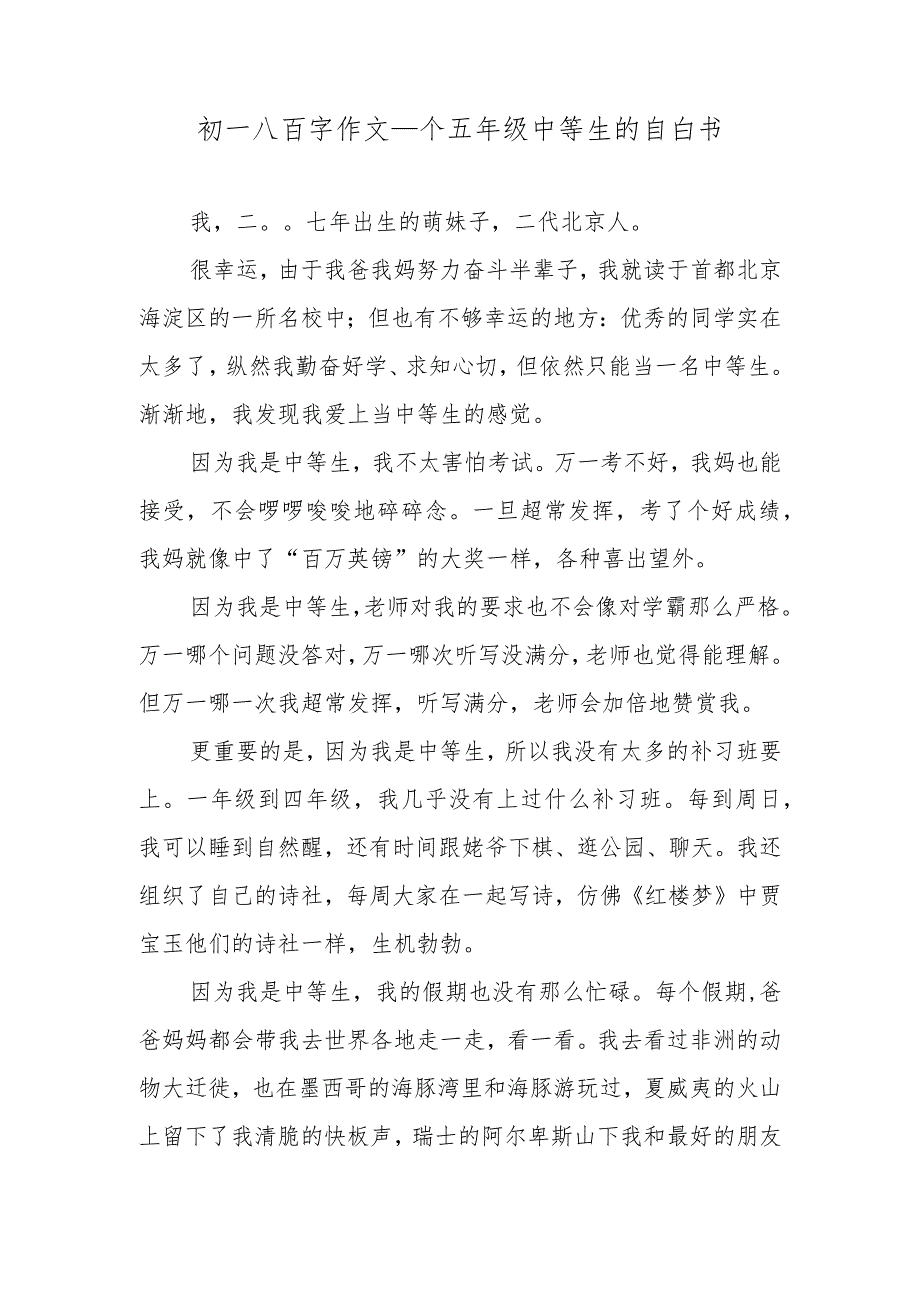 初一八百字作文—个五年级中等生的自白书
我，二。。七年出生的萌妹子，二代北京人。
很幸运，由于我爸我妈努力奋斗半辈子，我就读于首都北京
海淀区的一所名校中；但也有不够幸运的地方：优秀的同学实在
太多了，纵然我勤奋好学、求知心切，但依然只能当一名中等生。
渐渐地，我发现我爱上当中等生的感觉。
因为我是中等生，我不太害怕考试。万一考不好，我妈也能
接受，不会啰啰唆唆地碎碎念。一旦超常发挥，考了个好成绩，
我妈就像中了“百万英镑”的大奖一样，各种喜出望外。
因为我是中等生，老师对我的要求也不会像对学霸那么严格。
万一哪个问题没答对，万一哪次听写没满分，老师也觉得能理解。
但万一哪一次我超常发挥，听写满分，老师会加倍地赞赏我。
更重要的是，因为我是中等生，所以我没有太多的补习班要
上。一年级到四年级，我几乎没有上过什么补习班。每到周日，
我可以睡到自然醒，还有时间跟姥爷下棋、逛公园、聊天。我还
组织了自己的诗社，每周大家在一起写诗，仿佛《红楼梦》中贾
宝玉他们的诗社一样，生机勃勃。
因为我是中等生，我的假期也没有那么忙碌。每个假期,爸
爸妈妈都会带我去世界各地走一走，看一看。我去看过非洲的动
物大迁徙，也在墨西哥的海豚湾里和海豚游玩过，夏威夷的火山
上留下了我清脆的快板声，瑞士的阿尔卑斯山下我和最好的朋友